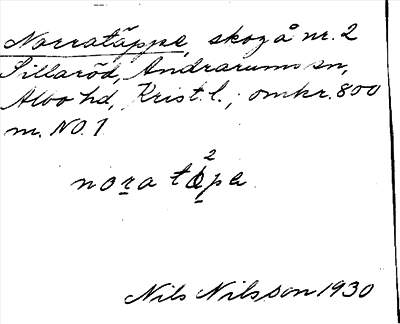 Norratäppe, skog å nr. 2
Sillaröd, Andrarums sn,
Albo hd, Krist. l.; omkr. 800
m. NO. 1
nora täpe
Nils Nilsson 1930